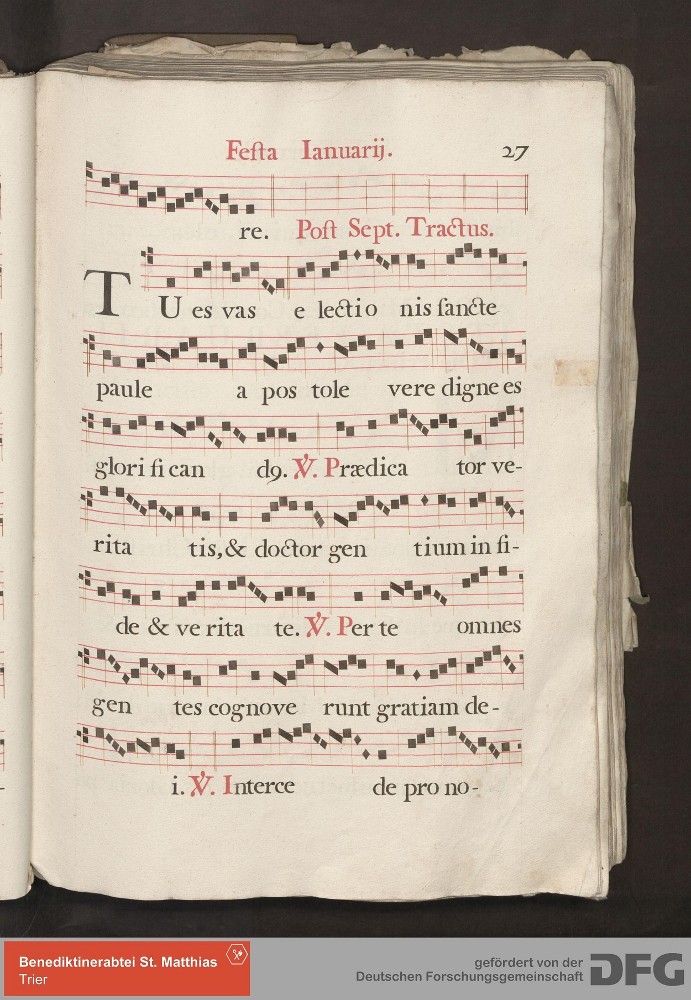 Festa Ianuarij. 27
re. Post Sept. Tractus.
TU es vas e lectio nis sancte
paule a pos tole vere digne es
glori fi can d9. V. Prædica tor ve-
rita tis, & doctor gen tium in fi-
de & ve rita te. V. Per te omnes
gen tes cognove runt gratiam de-
i. V. Interce de pro no-
Benediktinerabtei St. Matthias
Trier
gefördert von der
Deutschen Forschungsgemeinschaft DFG